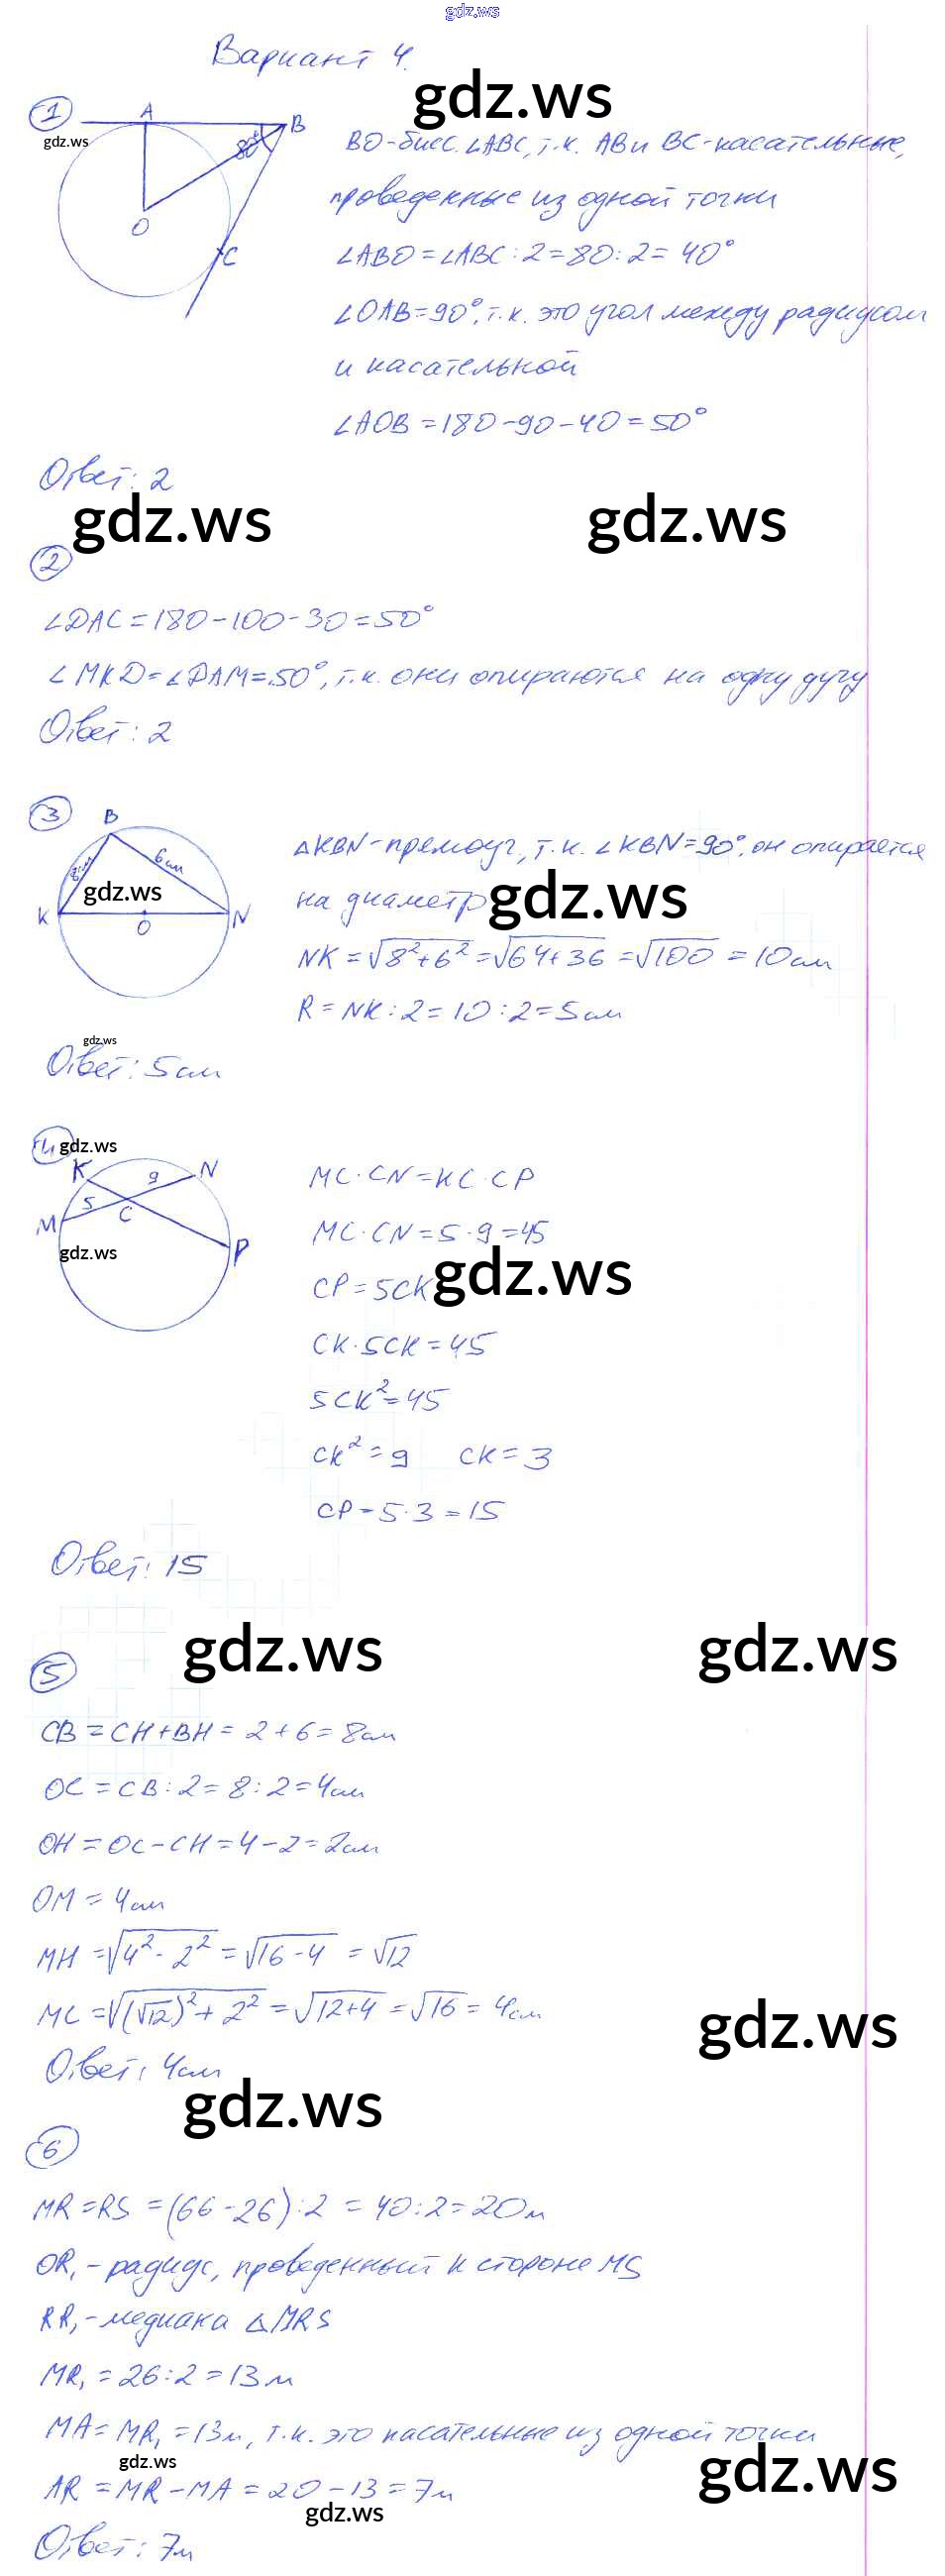 gdz.ws
Вариант 4.
gdz.ws
1
gdz.ws
A
B
80°
O
C
BO-бисс. ∠ABC, т.к. AB и BC-касательные,
проведенные из одной точки
∠ABO = ∠ABC : 2 = 80 : 2 = 40°
∠OAB = 90°, т.к. это угол между радиусом
и касательной
∠AOB = 180 - 90 - 40 = 50°
Ответ: 2
gdz.ws gdz.ws
2
∠DAC = 180 - 100 - 30 = 50°
∠MKD = ∠DAM = 50°, т.к. они опираются на одну дугу
Ответ: 2
3
B
8см
6см
gdz.ws
K
O
N
△KBN-прямоуг, т.к. ∠KBN = 90°, он опирается
на диаметр
gdz.ws
NK = √8²+6² = √64+36 = √100 = 10см
R = NK : 2 = 10 : 2 = 5см
gdz.ws
Ответ: 5см
4
gdz.ws
K
9
N
5
M
C
P
gdz.ws
MC · CN = KC · CP
MC · CN = 5 · 9 = 45
CP = 5CK
gdz.ws
CK · 5CK = 45
5CK² = 45
CK² = 9 CK = 3
CP = 5 · 3 = 15
Ответ: 15
gdz.ws gdz.ws
5
CB = CH + BH = 2 + 6 = 8см
OC = CB : 2 = 8 : 2 = 4см
OH = OC - CH = 4 - 2 = 2см
OM = 4см
MH = √4² - 2² = √16 - 4 = √12
MC = √(√12)² + 2² = √12+4 = √16 = 4см
gdz.ws
Ответ: 4см
gdz.ws
6
MR = RS = (66 - 26) : 2 = 40 : 2 = 20м
OR₁ - радиус, проведенный к стороне MS
RR₁ - медиана △MRS
MR₁ = 26 : 2 = 13м
MA = MR₁ = 13м, т.к. это касательные из одной точки
gdz.ws
gdz.ws
AR = MR - MA = 20 - 13 = 7м
gdz.ws
Ответ: 7м